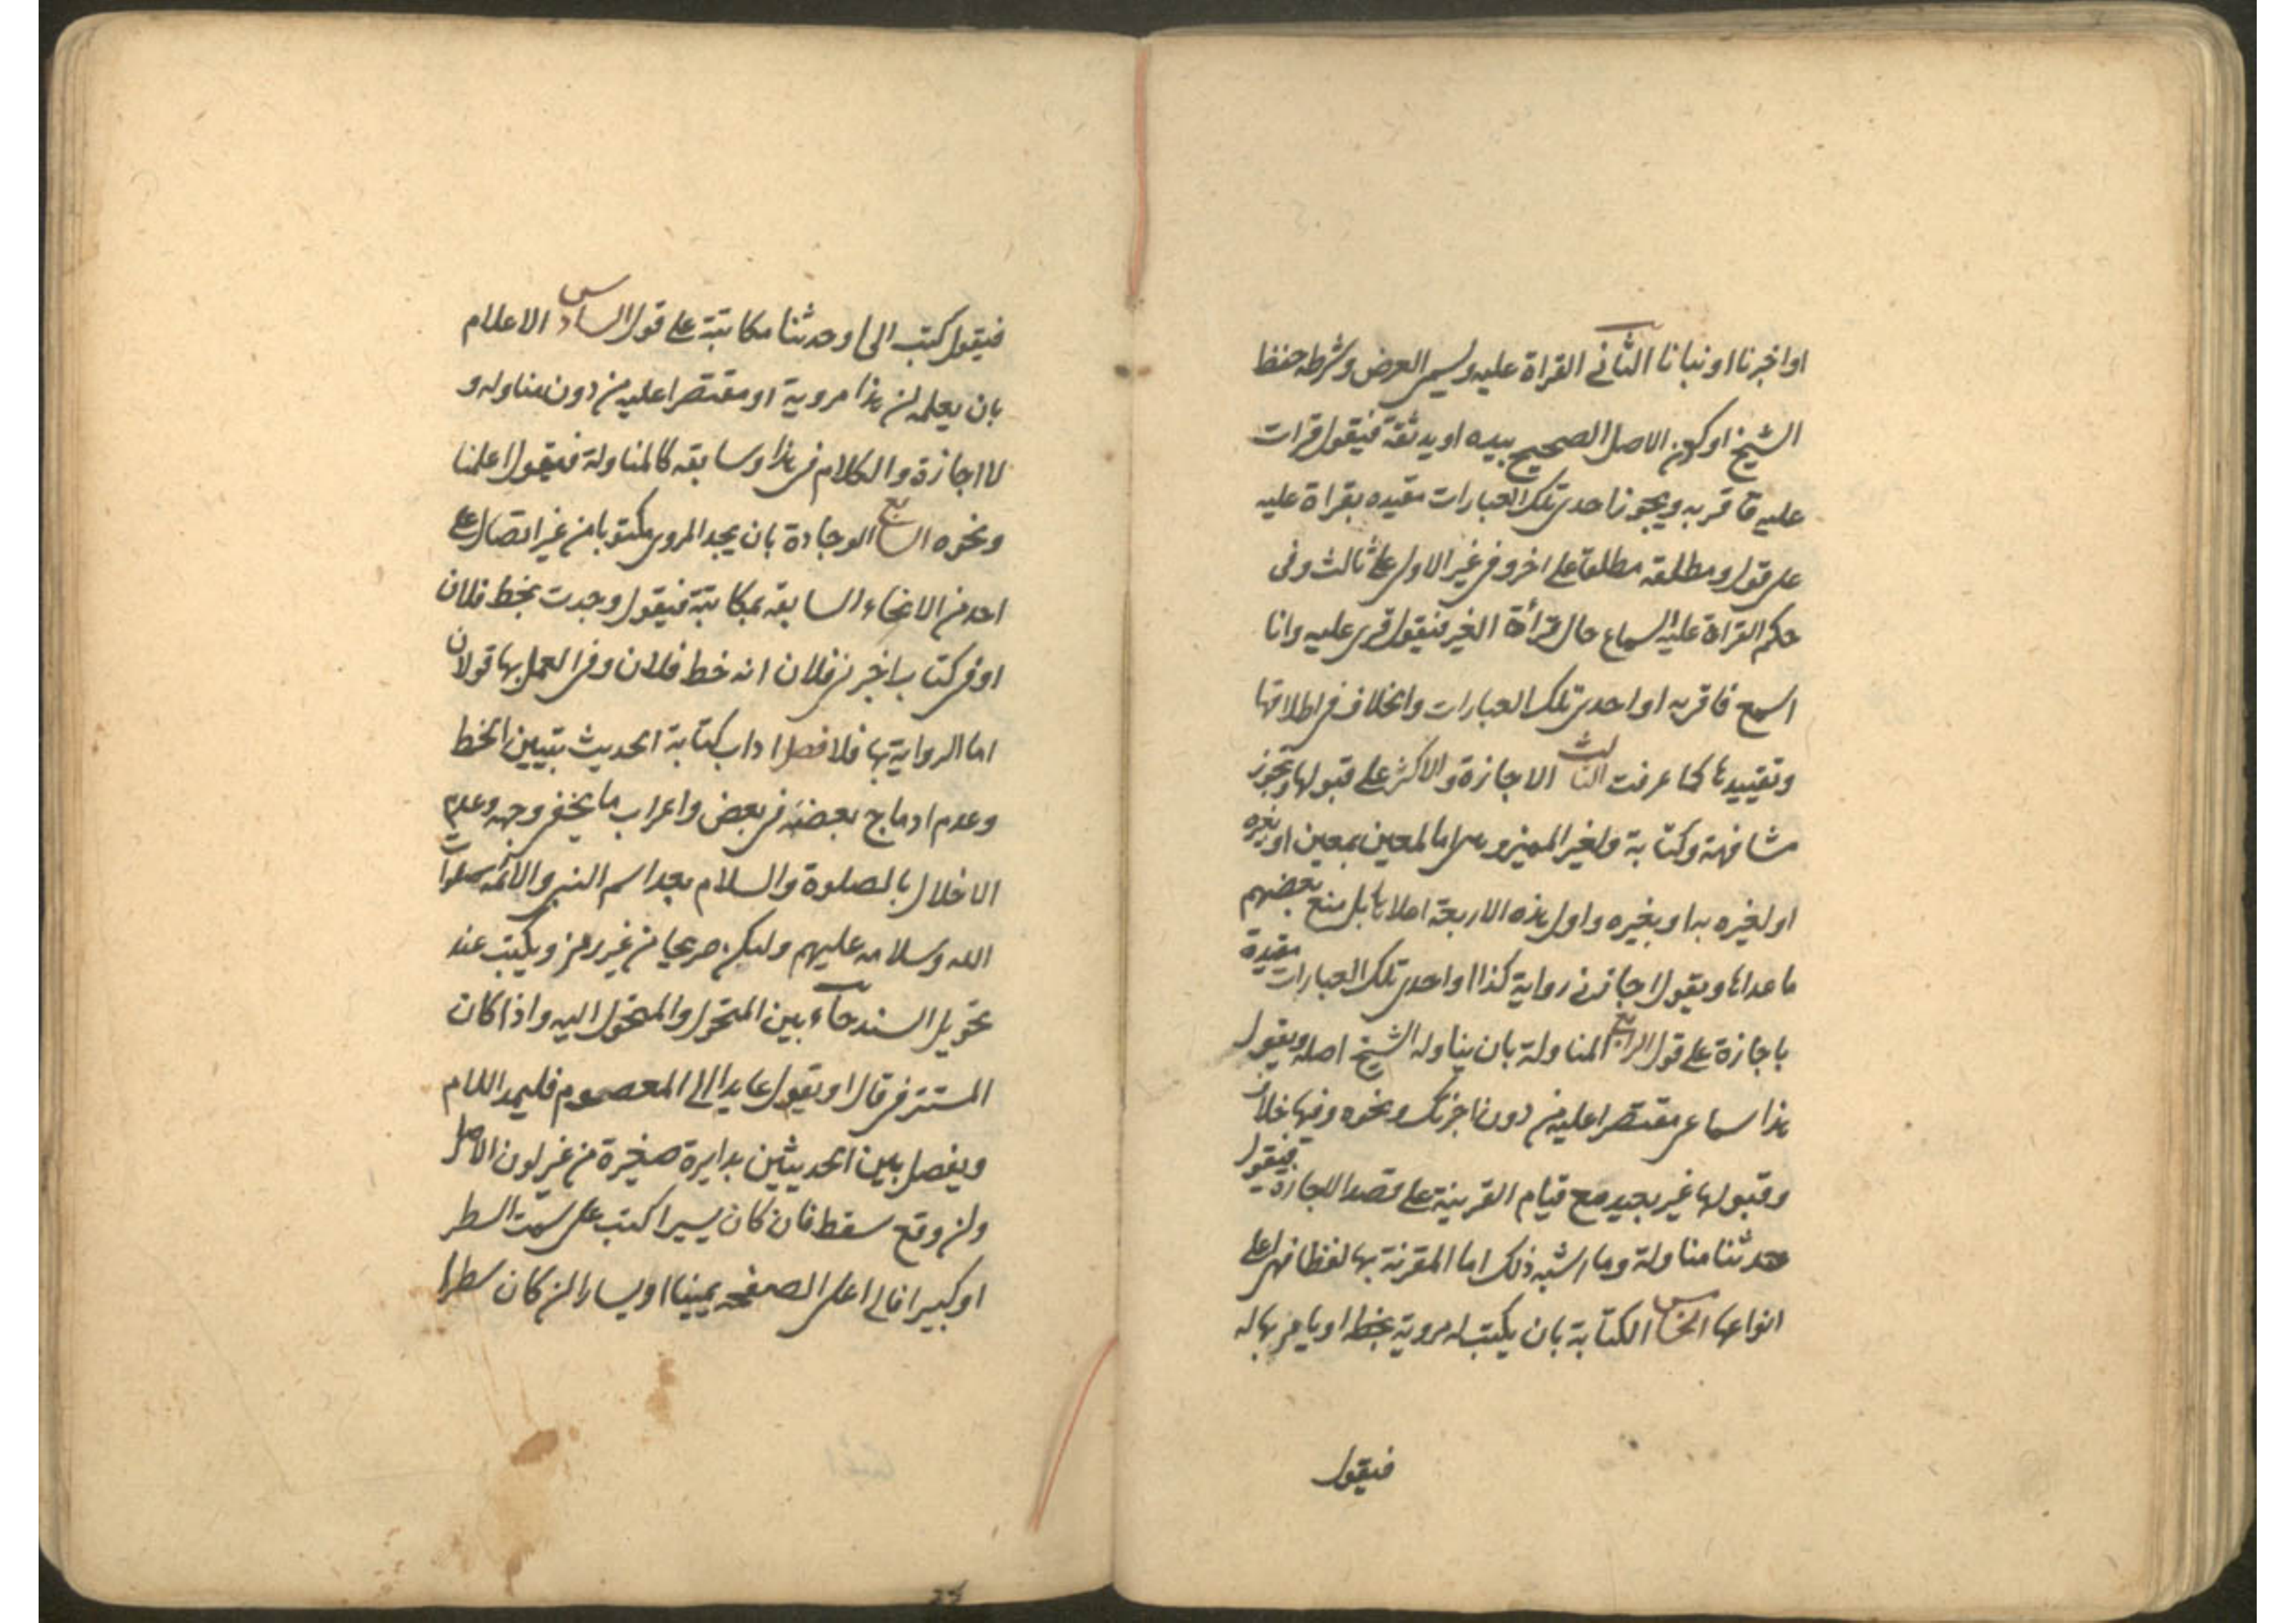 او اخبرنا او نبانا الثانى القراة عليه ويسمى العرض وشرطه حفظ
الشيخ او كون الاصل الصحيح بيده او يد ثقة فيقول قرات
عليه فاقر به ويجوز احدى تلك العبارات مقيده بقراة عليه
على قول ومطلقه مطلقا على اخر وفى غير الاول على ثالث وفى
حكم القراة عليه السماع حال قرأة الغير فيقول قرى عليه وانا
اسمع فاقر به او احدى تلك العبارات والخلاف فى اطلاقها
وتقييدها كما عرفت الثالث الاجازة والاكثر على قبولها ويجوز
مشافهة وكتابة ولغير المميز وهى اما لمعين بمعين او بغيره
او لغيره به او بغيره واول هذه الاربعة اعلاها بل منع بعضهم
ما عداها ويقول اجازنى رواية كذا او احدى تلك العبارات مقيدة
باجازة على قول الرابع المناولة بان يناوله الشيخ اصله ويقول
هذا سماعى مقتصرا عليه من دون اجزتك ونحوه وفيها خلاف
وقبولها غير بعيد مع قيام القرينة على قصد الاجازة فيقول
حدثنا مناولة وما اشبه ذلك اما المقرنة بها لفظا فهى اعلى
انواعها الخامس الكتابة بان يكتب له مرويه بخطه او يامر بها له
فيقول
فيقول كتب الى او حدثنا مكاتبة على قول السادس الاعلام
بان يعلمه ان هذا مرويه او مقتصرا عليه من دون مناوله و
لا اجازة والكلام فى هذا وسابقه كالمناولة فيقول اعلمنا
ونحوه السابع الوجادة بان يجد المروى مكتوبا من غير اتصال على
احد من الانحاء السابقه بمكاتبة فيقول وجدت بخط فلان
او فى كتاب اخبرنى فلان انه خط فلان وفى العمل بها قولان
اما الرواية بها فلا فصل اداب كتابة الحديث بتبيين الخط
وعدم ادماج بعضه فى بعض واعراب ما يخفى وجهه وعدم
الاخلال بالصلوة والسلام بعد اسم النبى والائمه صلوات
الله وسلامه عليهم وليكن صريحا من غير رمز ويكتب عند
تحويل السند حاء بين المتحول والمتحول اليه واذا كان
المستتر فى قال او يقول عايدا الى المعصوم فليمد اللام
ويفصل بين الحديثين بدايرة صغيرة من غير لون الاصل
وان وقع سقط فان كان يسيرا كتب على سمت السطر
او كبيرا فالى اعلى الصفحه يمينا او يسارا ان كان سطرا